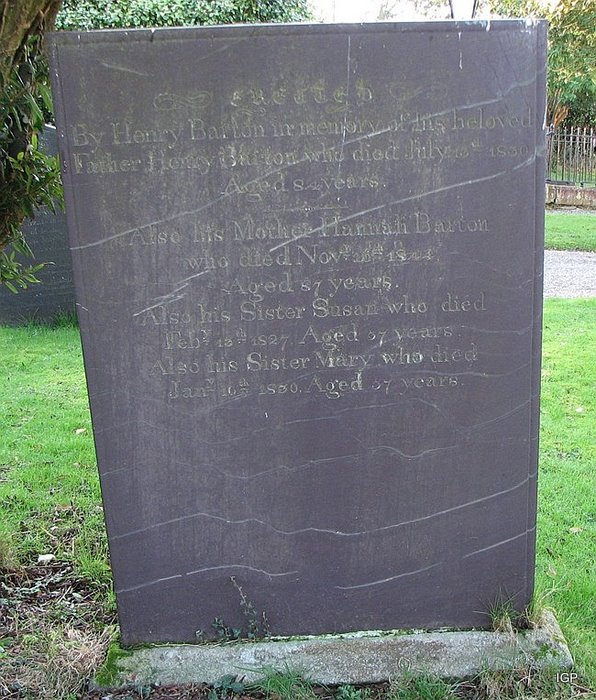 ERECTED
By Henry Barton in memory of his beloved
Father Henry Barton who died July 1830
Aged 84 years.
Also his Mother Hannah Barton
who died Novr.
Aged 87 years.
Also his Sister Susan who died
Feby. 13th 1827. Aged 37 years.
Also his Sister Mary who died
Jany. 16th 1830. Aged 37 years.
IGP